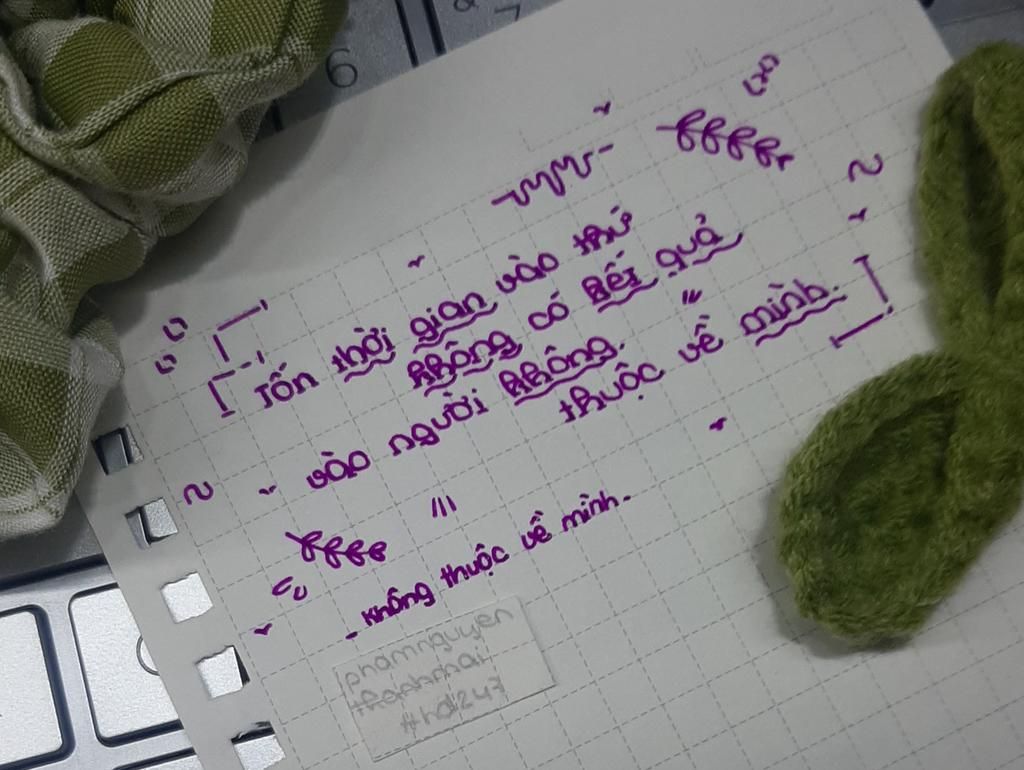 Tốn thời gian vào thứ
không có kết quả
vào người không.
thuộc về mình.
- Không thuộc về mình.
phamnguyen
thanhmai
#hdl247
6
7